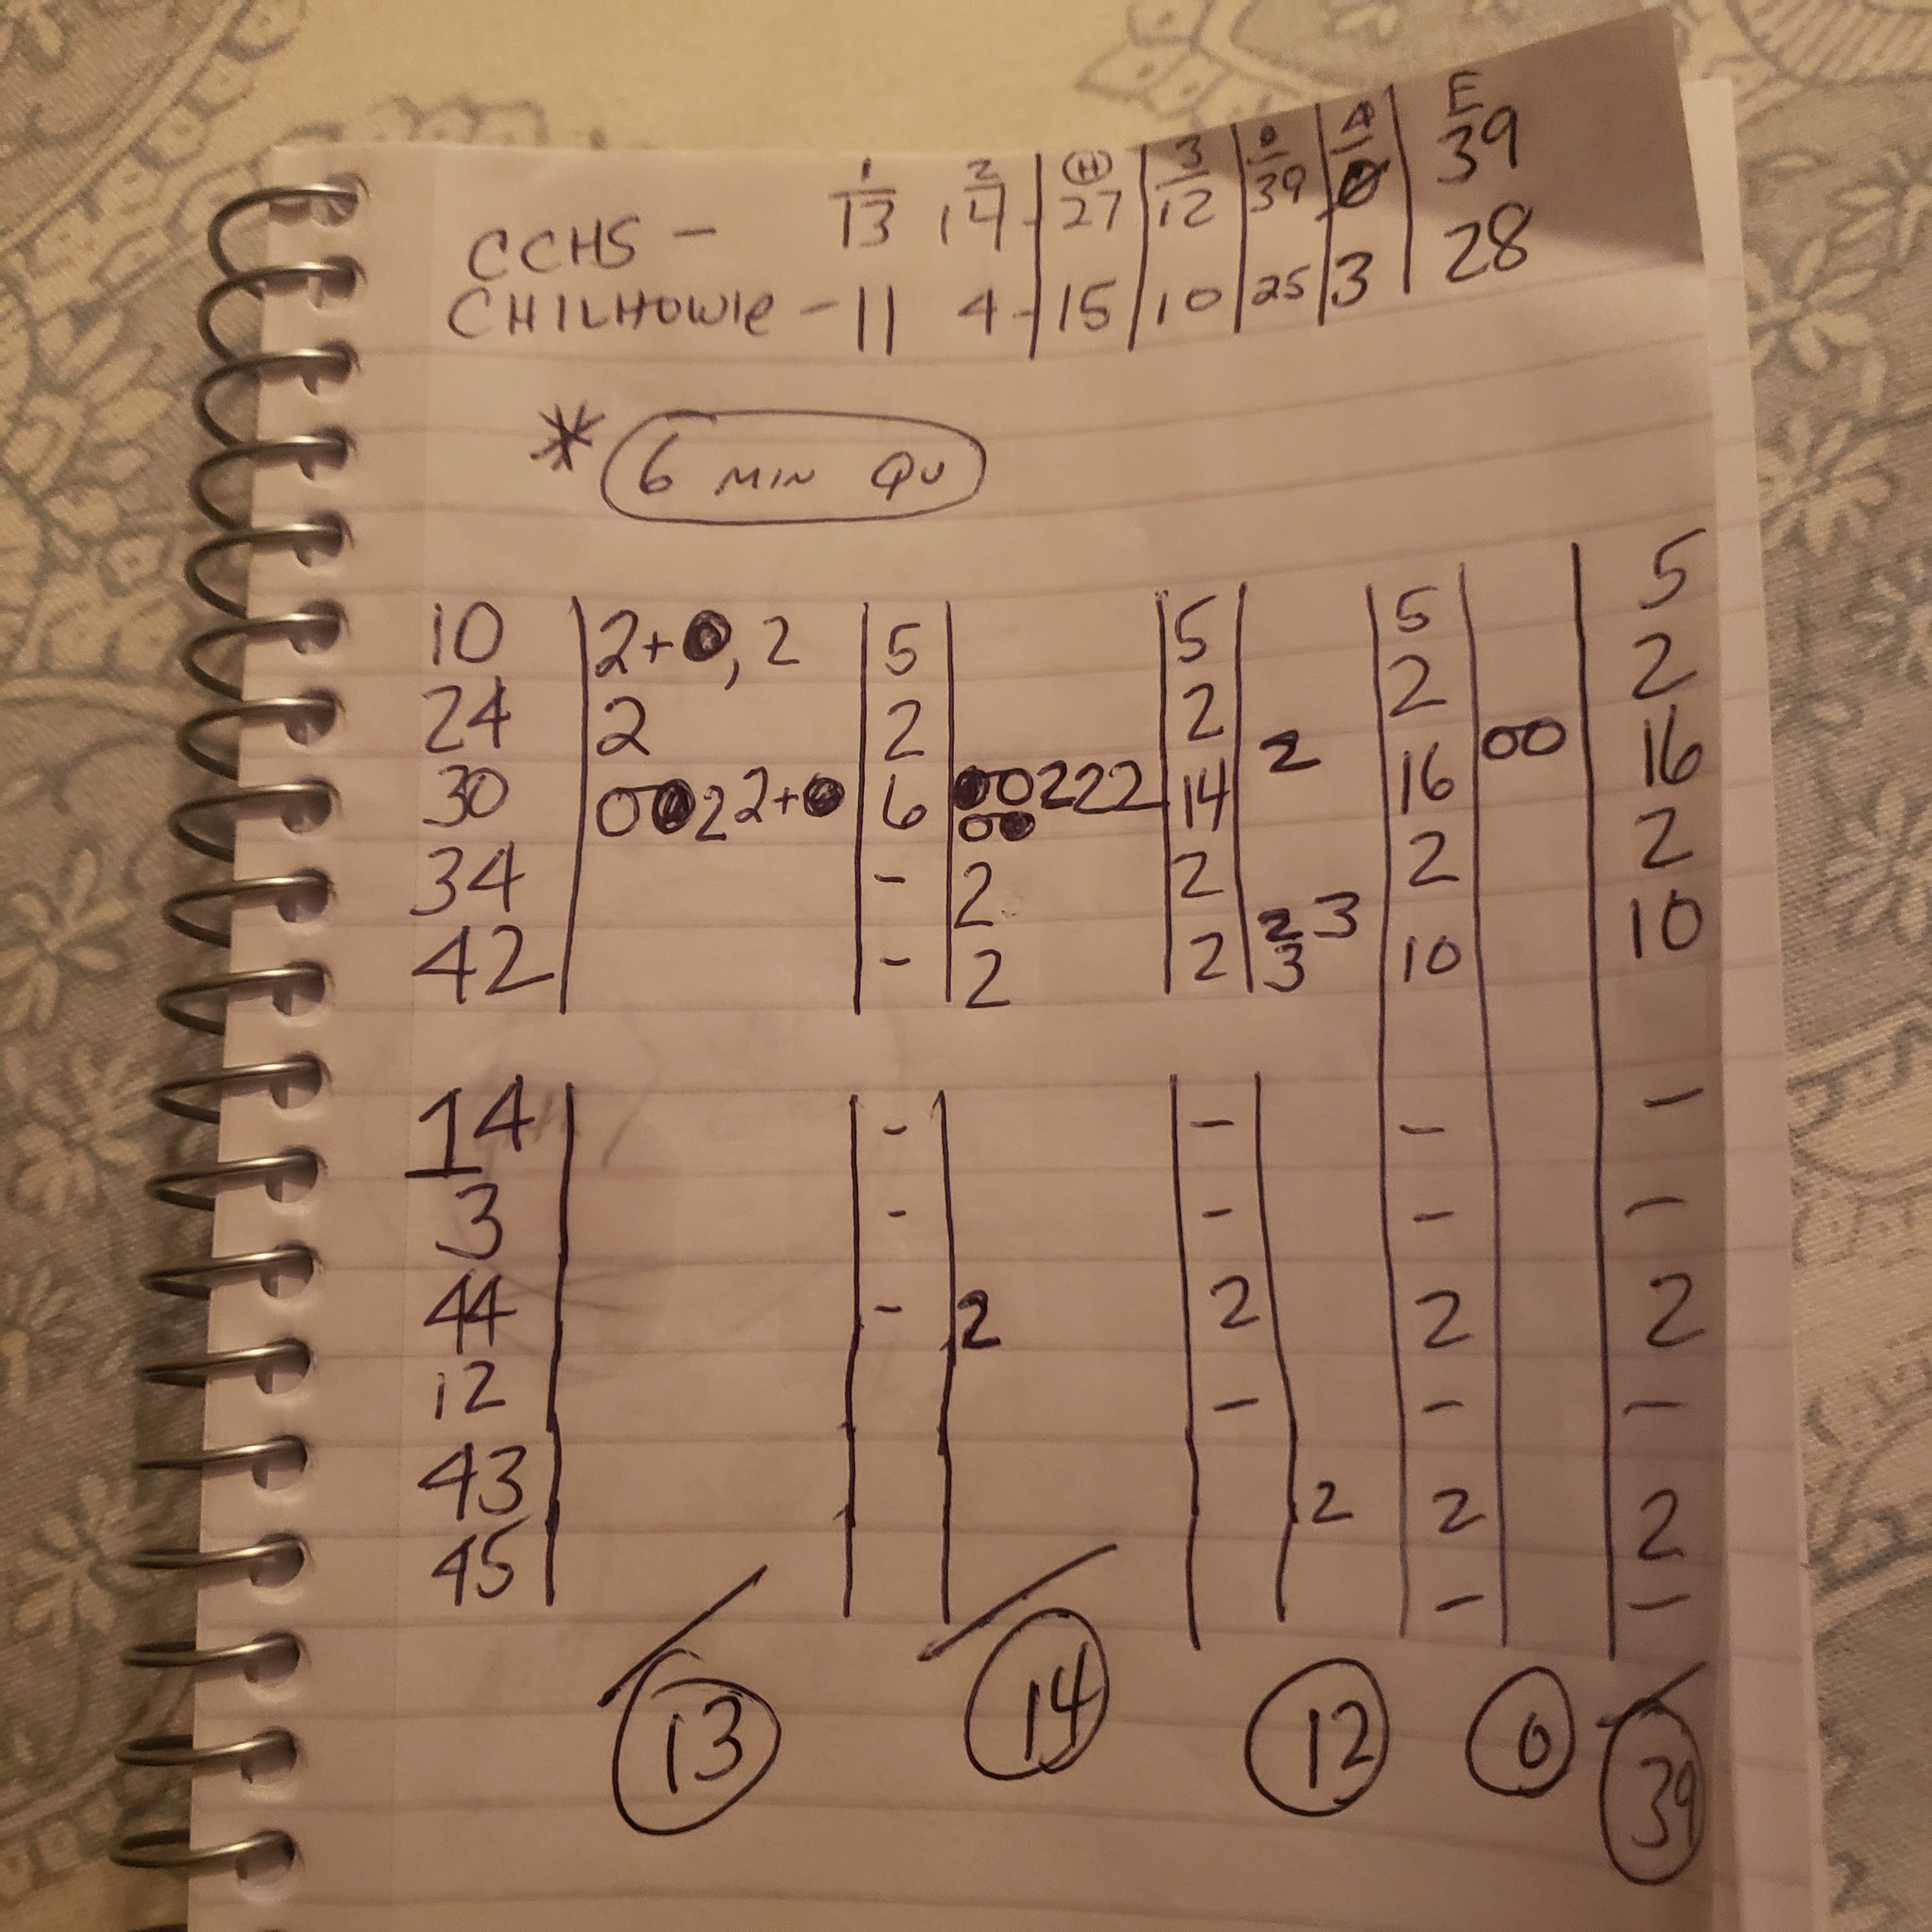 1 2 (H) 3 4 E
CCHS - 13 14 27 12 39 0 39
CHILHOWIE - 11 4 15 10 25 3 28
* 6 MIN QU
10 2+●, 2 5 5 5 5
24 2 2 2 2 2
30 O●22+● 6 ●O222 O● 14 2 16 OO 16
34 - 2 2 2 2
42 - 2 2 2 3 3 10 10
14 - - - -
3 - - - -
44 - 2 2 2 2
12 - - -
43 2 2 2
45 - -
13 14 12 0 39